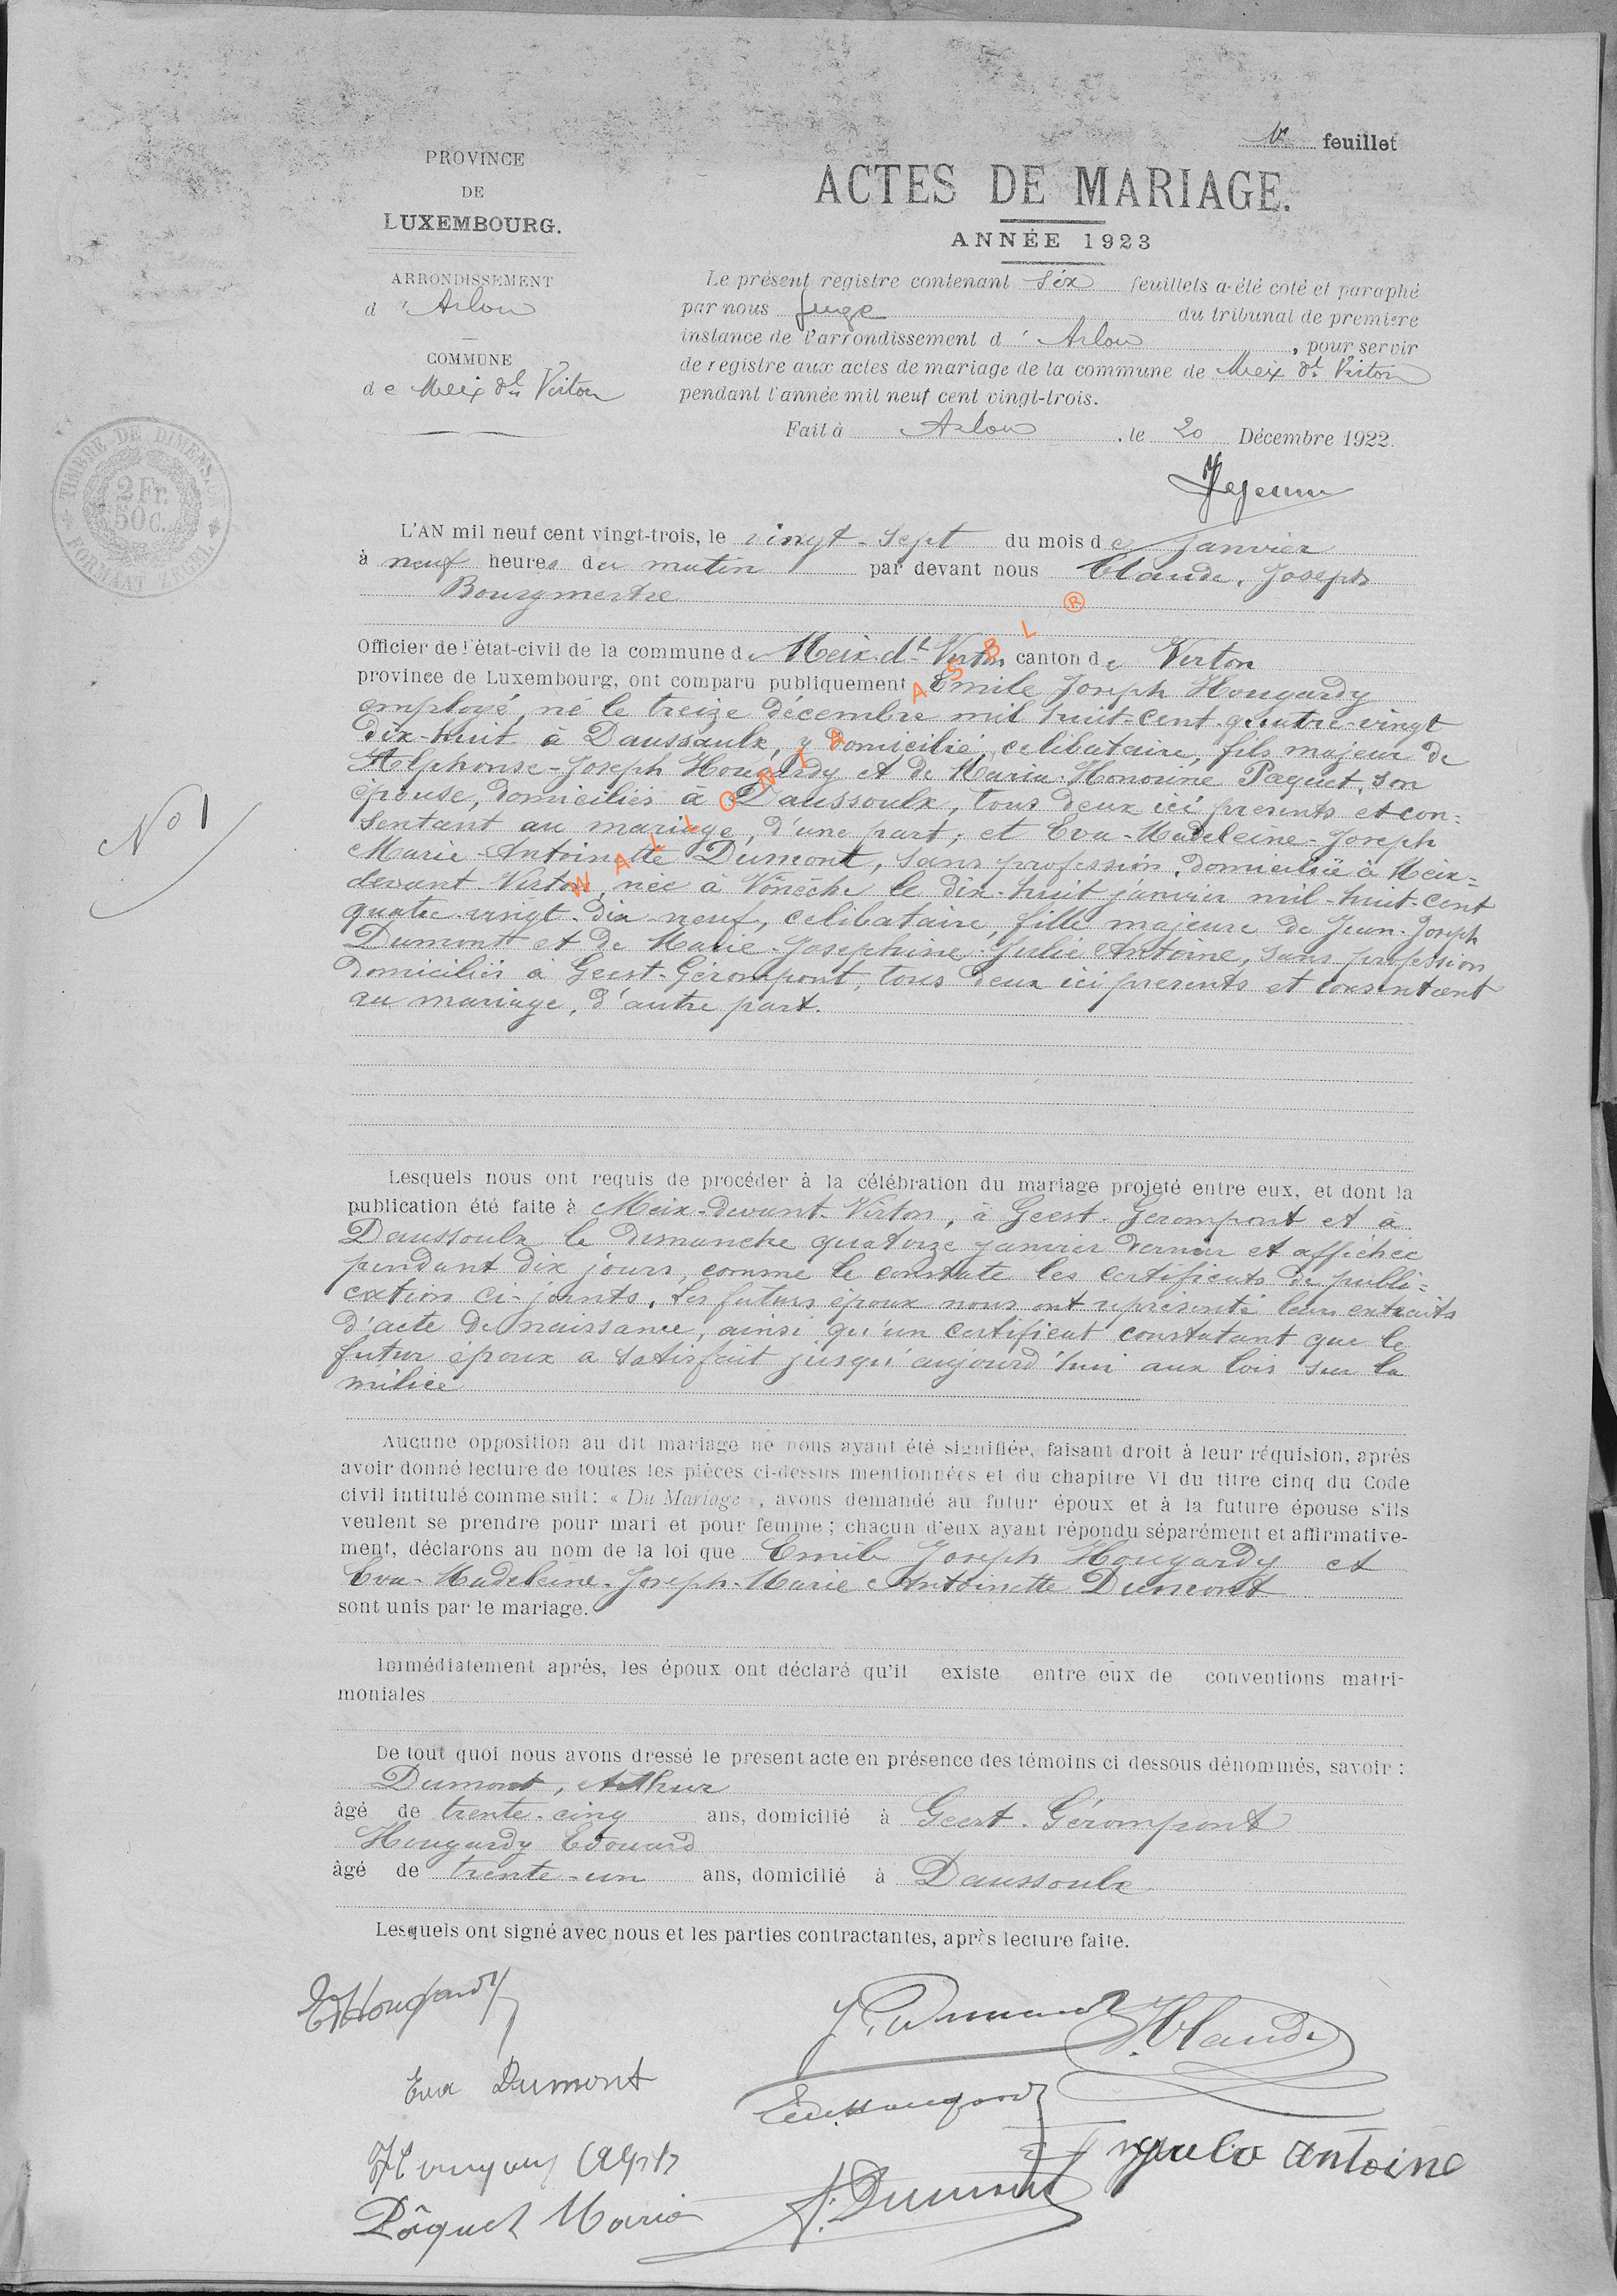 1er feuillet
PROVINCE
DE
LUXEMBOURG.
ARRONDISSEMENT
d'Arlon
COMMUNE
de Meix dt Virton
ACTES DE MARIAGE.
ANNÉE 1923
Le présent registre contenant six feuillets a été coté et paraphé
par nous Juge du tribunal de première
instance de l'arrondissement d'Arlon, pour servir
de registre aux actes de mariage de la commune de Meix dt Virton
pendant l'année mil neuf cent vingt-trois.
Fait à Arlon, le 20 Décembre 1922.
TIMBRE DE DIMENSION
2 Fr.
50 C.
FORMAAT ZEGEL
L'AN mil neuf cent vingt-trois, le vingt-sept du mois de janvier
à neuf heures du matin par devant nous Claude, Joseph
Bourgmestre
Officier de l'état-civil de la commune de Meix-dt-Virton canton de Virton
province de Luxembourg, ont comparu publiquement Emile Joseph Hougardy
employé, né le treize décembre mil huit-cent-quatre-vingt
dix-huit à Daussoulx, y domicilié, celibataire, fils majeur de
Alphonse-Joseph Hougardy et de Maria-Honorine Paquet, son
épouse, domiciliés à Daussoulx, tous deux ici presents et con=
sentant au mariage, d'une part; et Eva-Madeleine-Joseph
Marie-Antoinette Dumont, sans profession, domiciliée à Meix=
devant-Virton, née à Vonêche le dix-huit janvier mil-huit-cent
quatre-vingt-dix-neuf, celibataire, fille majeure de Jean-Joseph
Dumont et de Marie-Josephine-Julie Antoine, sans profession
domiciliés à Geest-Gérompont, tous deux ici presents et consentant
au mariage, d'autre part.
N° 1
WALLONIA ASBL ®
Lesquels nous ont requis de procéder à la célébration du mariage projeté entre eux, et dont la
publication été faite à Meix-devant-Virton, à Geest-Gerompont et à
Daussoulx le dimanche quatorze janvier dernier et affichée
pendant dix jours, comme le constate les certificats de publi=
cation ci-joints. Les futurs époux nous ont représenté leurs extraits
d'acte de naissance, ainsi qu'un certificat constatant que le
futur époux a satisfait jusqu'aujourd'hui aux lois sur la
milice
Aucune opposition au dit mariage ne nous ayant été signifiée, faisant droit à leur réquision, après
avoir donné lecture de toutes les pièces ci-dessus mentionnées et du chapitre VI du titre cinq du Code
civil intitulé comme suit: « Du Mariage », avons demandé au futur époux et à la future épouse s'ils
veulent se prendre pour mari et pour femme; chacun d'eux ayant répondu séparément et affirmative-
ment, déclarons au nom de la loi que Emile Joseph Hougardy et
Eva-Madeleine-Joseph-Marie Antoinette Dumont
sont unis par le mariage.
Immédiatement après, les époux ont déclaré qu'il existe entre eux de conventions matri-
moniales
De tout quoi nous avons dressé le présent acte en présence des témoins ci dessous dénommés, savoir :
Dumont, Arthur
âgé de trente-cinq ans, domicilié à Geest-Gérompont
Hougardy Edouard
âgé de trente-un ans, domicilié à Daussoulx
Lesquels ont signé avec nous et les parties contractantes, après lecture faite.
E Hougardy
J. Dumont
J. Claude
Eva Dumont
Ed. Hougardy
Julie Antoine
Hougardy Alph
A. Dumont
Pâquet Maria